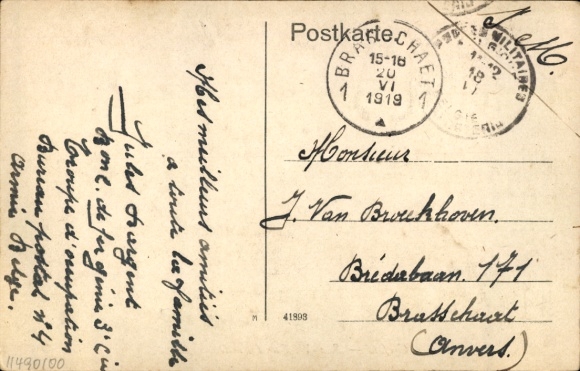 Postkarte.
S. M.
BRASSCHAET
15-18
20
VI
1919
1 1
MILITAIRES
18
VI
Monsieur
J. Van Broeckhoven.
Brédabaan. 171
Brasschaat
(Anvers.)
Mes meilleurs amitiés
a toute la famille
Jules Sargent
du génie 3e Cie
Troupe d'occupation
Bureau postal n°4
armée Belge.
M 41893
11490100